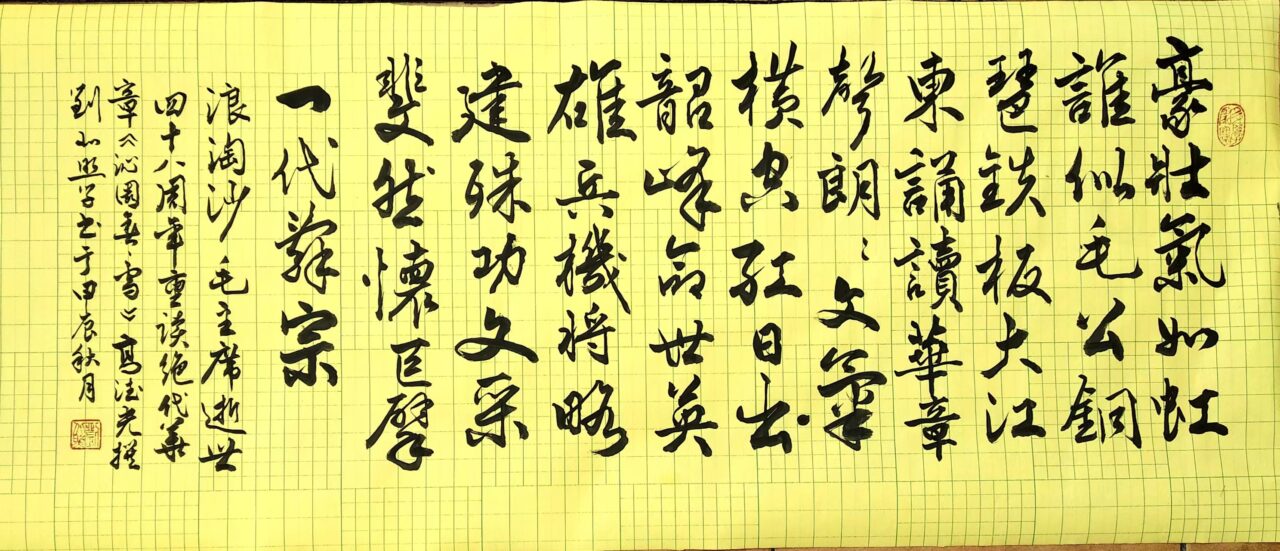 豪壯氣如虹
誰似毛公銅
琶鉄板大江
東誦讀華章
聲朗々文氣
横空紅日出
韶峰命世英
雄兵機将略
建殊功文采
斐然懷巨擘
一代辭宗
浪淘沙 毛主席逝世
四十八周年重读绝代華
章《沁園春·雪》高德光撰
劉 照学书于甲辰秋月